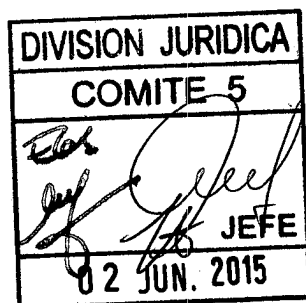 DIVISION JURIDICA
COMITE 5
JEFE
02 JUN. 2015